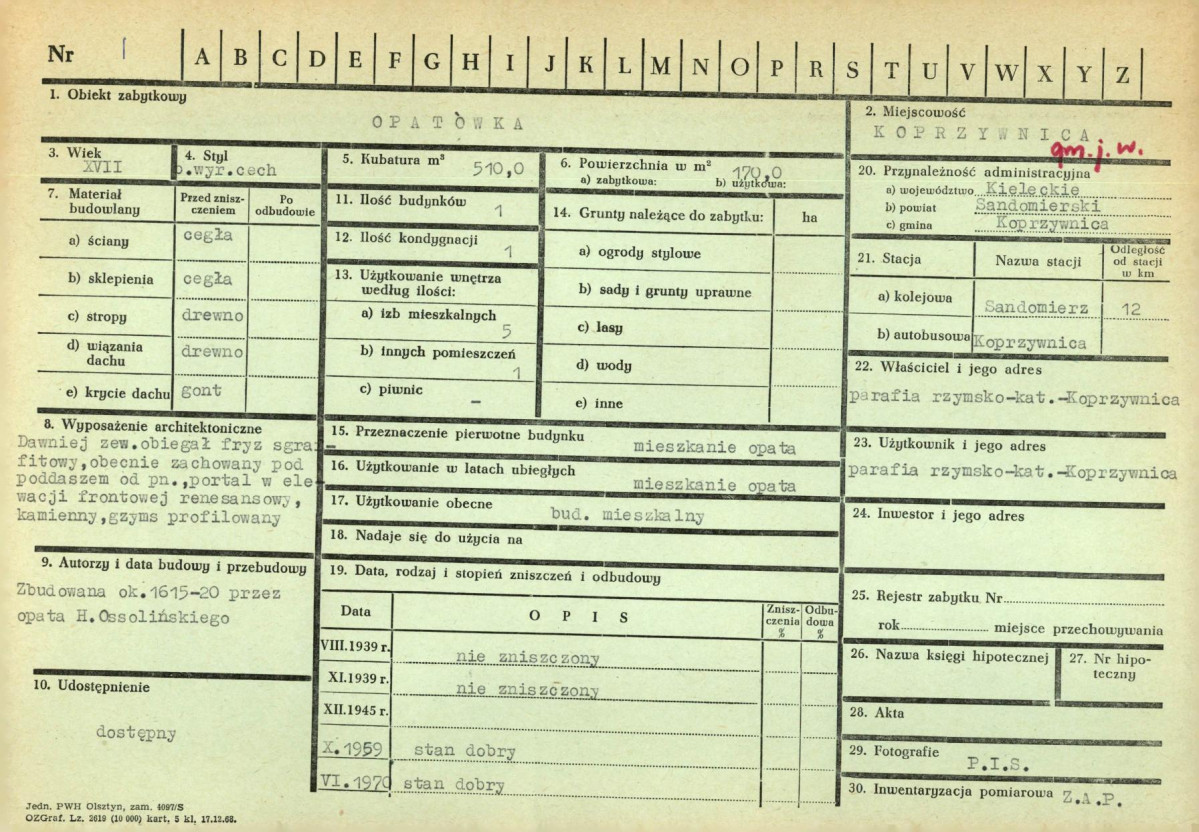 Nr 1 A B C D E F G H I J K L M N O P R S T U V W X Y Z
1. Obiekt zabytkowy
OPATÒWKA
2. Miejscowość
KOPRZYWNICA
gm. j. w.
3. Wiek
XVII
4. Styl
b.wyr.cech
5. Kubatura m³
510,0
6. Powierzchnia w m²
170,0
a) zabytkowa: b) użytkowa:
7. Materiał budowlany
Przed zniszczeniem
Po odbudowie
a) ściany cegła
b) sklepienia cegła
c) stropy drewno
d) wiązania dachu drewno
e) krycie dachu gont
8. Wyposażenie architektoniczne
Dawniej zew.obiegał fryz sgra-
fitowy,obecnie zachowany pod
poddaszem od pn.,portal w ele
wacji frontowej renesansowy,
kamienny,gzyms profilowany
9. Autorzy i data budowy i przebudowy
Zbudowana ok.1615-20 przez
opata H.Ossolińskiego
10. Udostępnienie
dostępny
11. Ilość budynków
1
12. Ilość kondygnacji
1
13. Użytkowanie wnętrza
według ilości:
a) izb mieszkalnych
5
b) innych pomieszczeń
1
c) piwnic
-
14. Grunty należące do zabytku: ha
a) ogrody stylowe
b) sady i grunty uprawne
c) lasy
d) wody
e) inne
15. Przeznaczenie pierwotne budynku
mieszkanie opata
16. Użytkowanie w latach ubiegłych
mieszkanie opata
17. Użytkowanie obecne
bud. mieszkalny
18. Nadaje się do użycia na
19. Data, rodzaj i stopień zniszczeń i odbudowy
Data OPIS Zniszczenia % Odbudowa %
VIII.1939 r. nie zniszczony
XI.1939 r. nie zniszczony
XII.1945 r.
X.1959 stan dobry
VI.1970 stan dobry
20. Przynależność administracyjna
a) województwo Kieleckie
b) powiat Sandomierski
c) gmina Koprzywnica
21. Stacja Nazwa stacji Odległość od stacji w km
a) kolejowa Sandomierz 12
b) autobusowa Koprzywnica
22. Właściciel i jego adres
parafia rzymsko-kat.-Koprzywnica
23. Użytkownik i jego adres
parafia rzymsko-kat.-Koprzywnica
24. Inwestor i jego adres
25. Rejestr zabytku Nr
rok miejsce przechowywania
26. Nazwa księgi hipotecznej
27. Nr hipoteczny
28. Akta
29. Fotografie
P.I.S.
30. Inwentaryzacja pomiarowa Z.A.P.
Jedn. PWH Olsztyn, zam. 4097/S
OZGraf. Lz. 2619 (10 000) kart. 5 kl. 17.12.68.